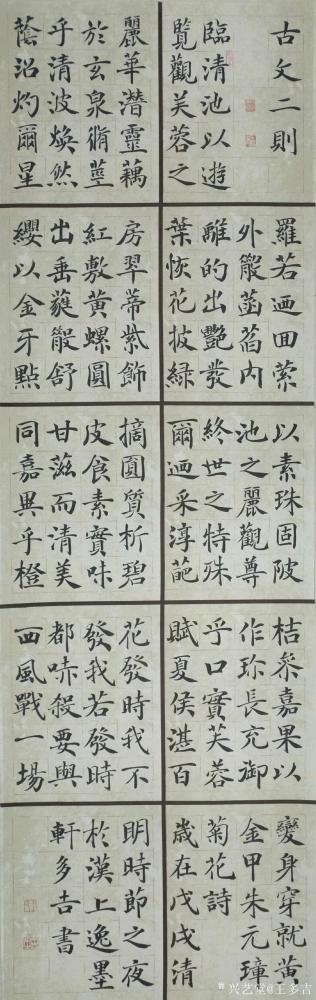 古文二則
臨清池以遊
覽觀芙蓉之
麗華潛靈藕
於玄泉脩莖
乎清波煥然
蔭沼灼爾星
羅若迺回縈
外散菡萏内
離的出艷發
葉恢花披綠
房翠蒂紫飾
紅敷黃螺圓
出垂蕤散舒
纓以金牙點
以素珠固陂
池之麗觀尊
終世之特殊
爾迺采淳葩
摘圓質析碧
皮食素實味
甘滋而清美
同嘉異乎橙
桔參嘉果以
作珍長充御
乎口實芙蓉
賦夏侯湛百
花發時我不
發我若發時
都哧殺要與
西風戰一場
變身穿就黃
金甲朱元璋
菊花詩
歲在戊戌清
明時節之夜
於漢上逸墨
軒多吉書
兴艺堂@王多吉